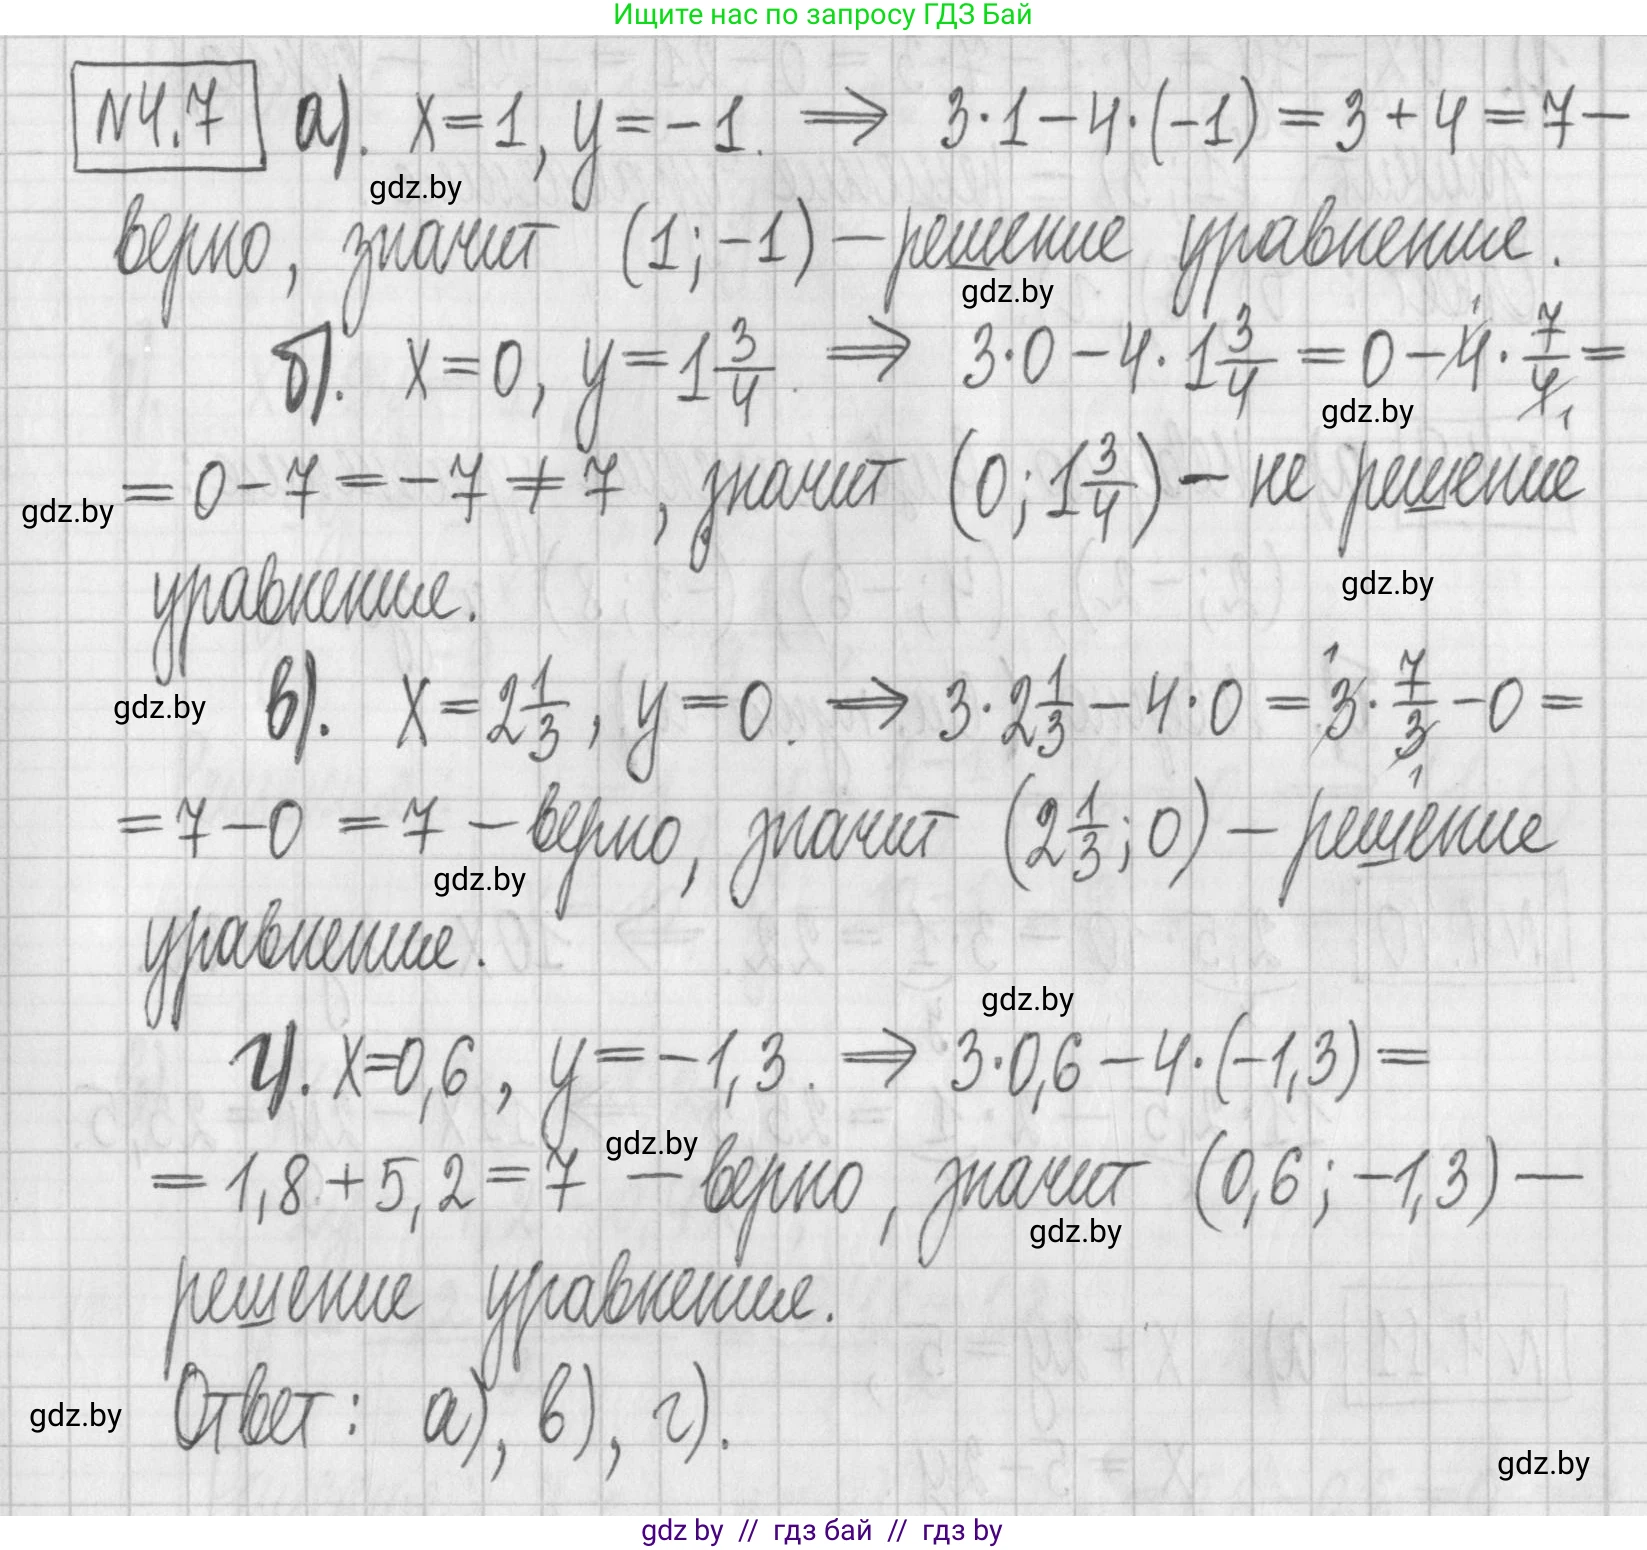 Ищите нас по запросу ГДЗ Бай
№4.7 а). x=1, y=-1. ⇒ 3·1-4·(-1)=3+4=7-
gdz.by
верно, значит (1;-1)-решение уравнение.
gdz.by
б). x=0, y=1 3/4. ⇒ 3·0-4·1 3/4=0-4·7/4=
gdz.by
gdz.by =0-7=-7≠7, значит (0;1 3/4)-не решение
gdz.by
уравнение.
gdz.by в). x=2 1/3, y=0. ⇒ 3·2 1/3-4·0=3·7/3-0=
=7-0=7-верно, значит (2 1/3;0)-решение
gdz.by
уравнение.
gdz.by
г). x=0,6, y=-1,3. ⇒ 3·0,6-4·(-1,3)=
gdz.by
=1,8+5,2=7-верно, значит (0,6;-1,3)-
gdz.by
решение уравнение.
gdz.by Ответ: а), в), г).
gdz.by
gdz by // гдз бай // гдз by